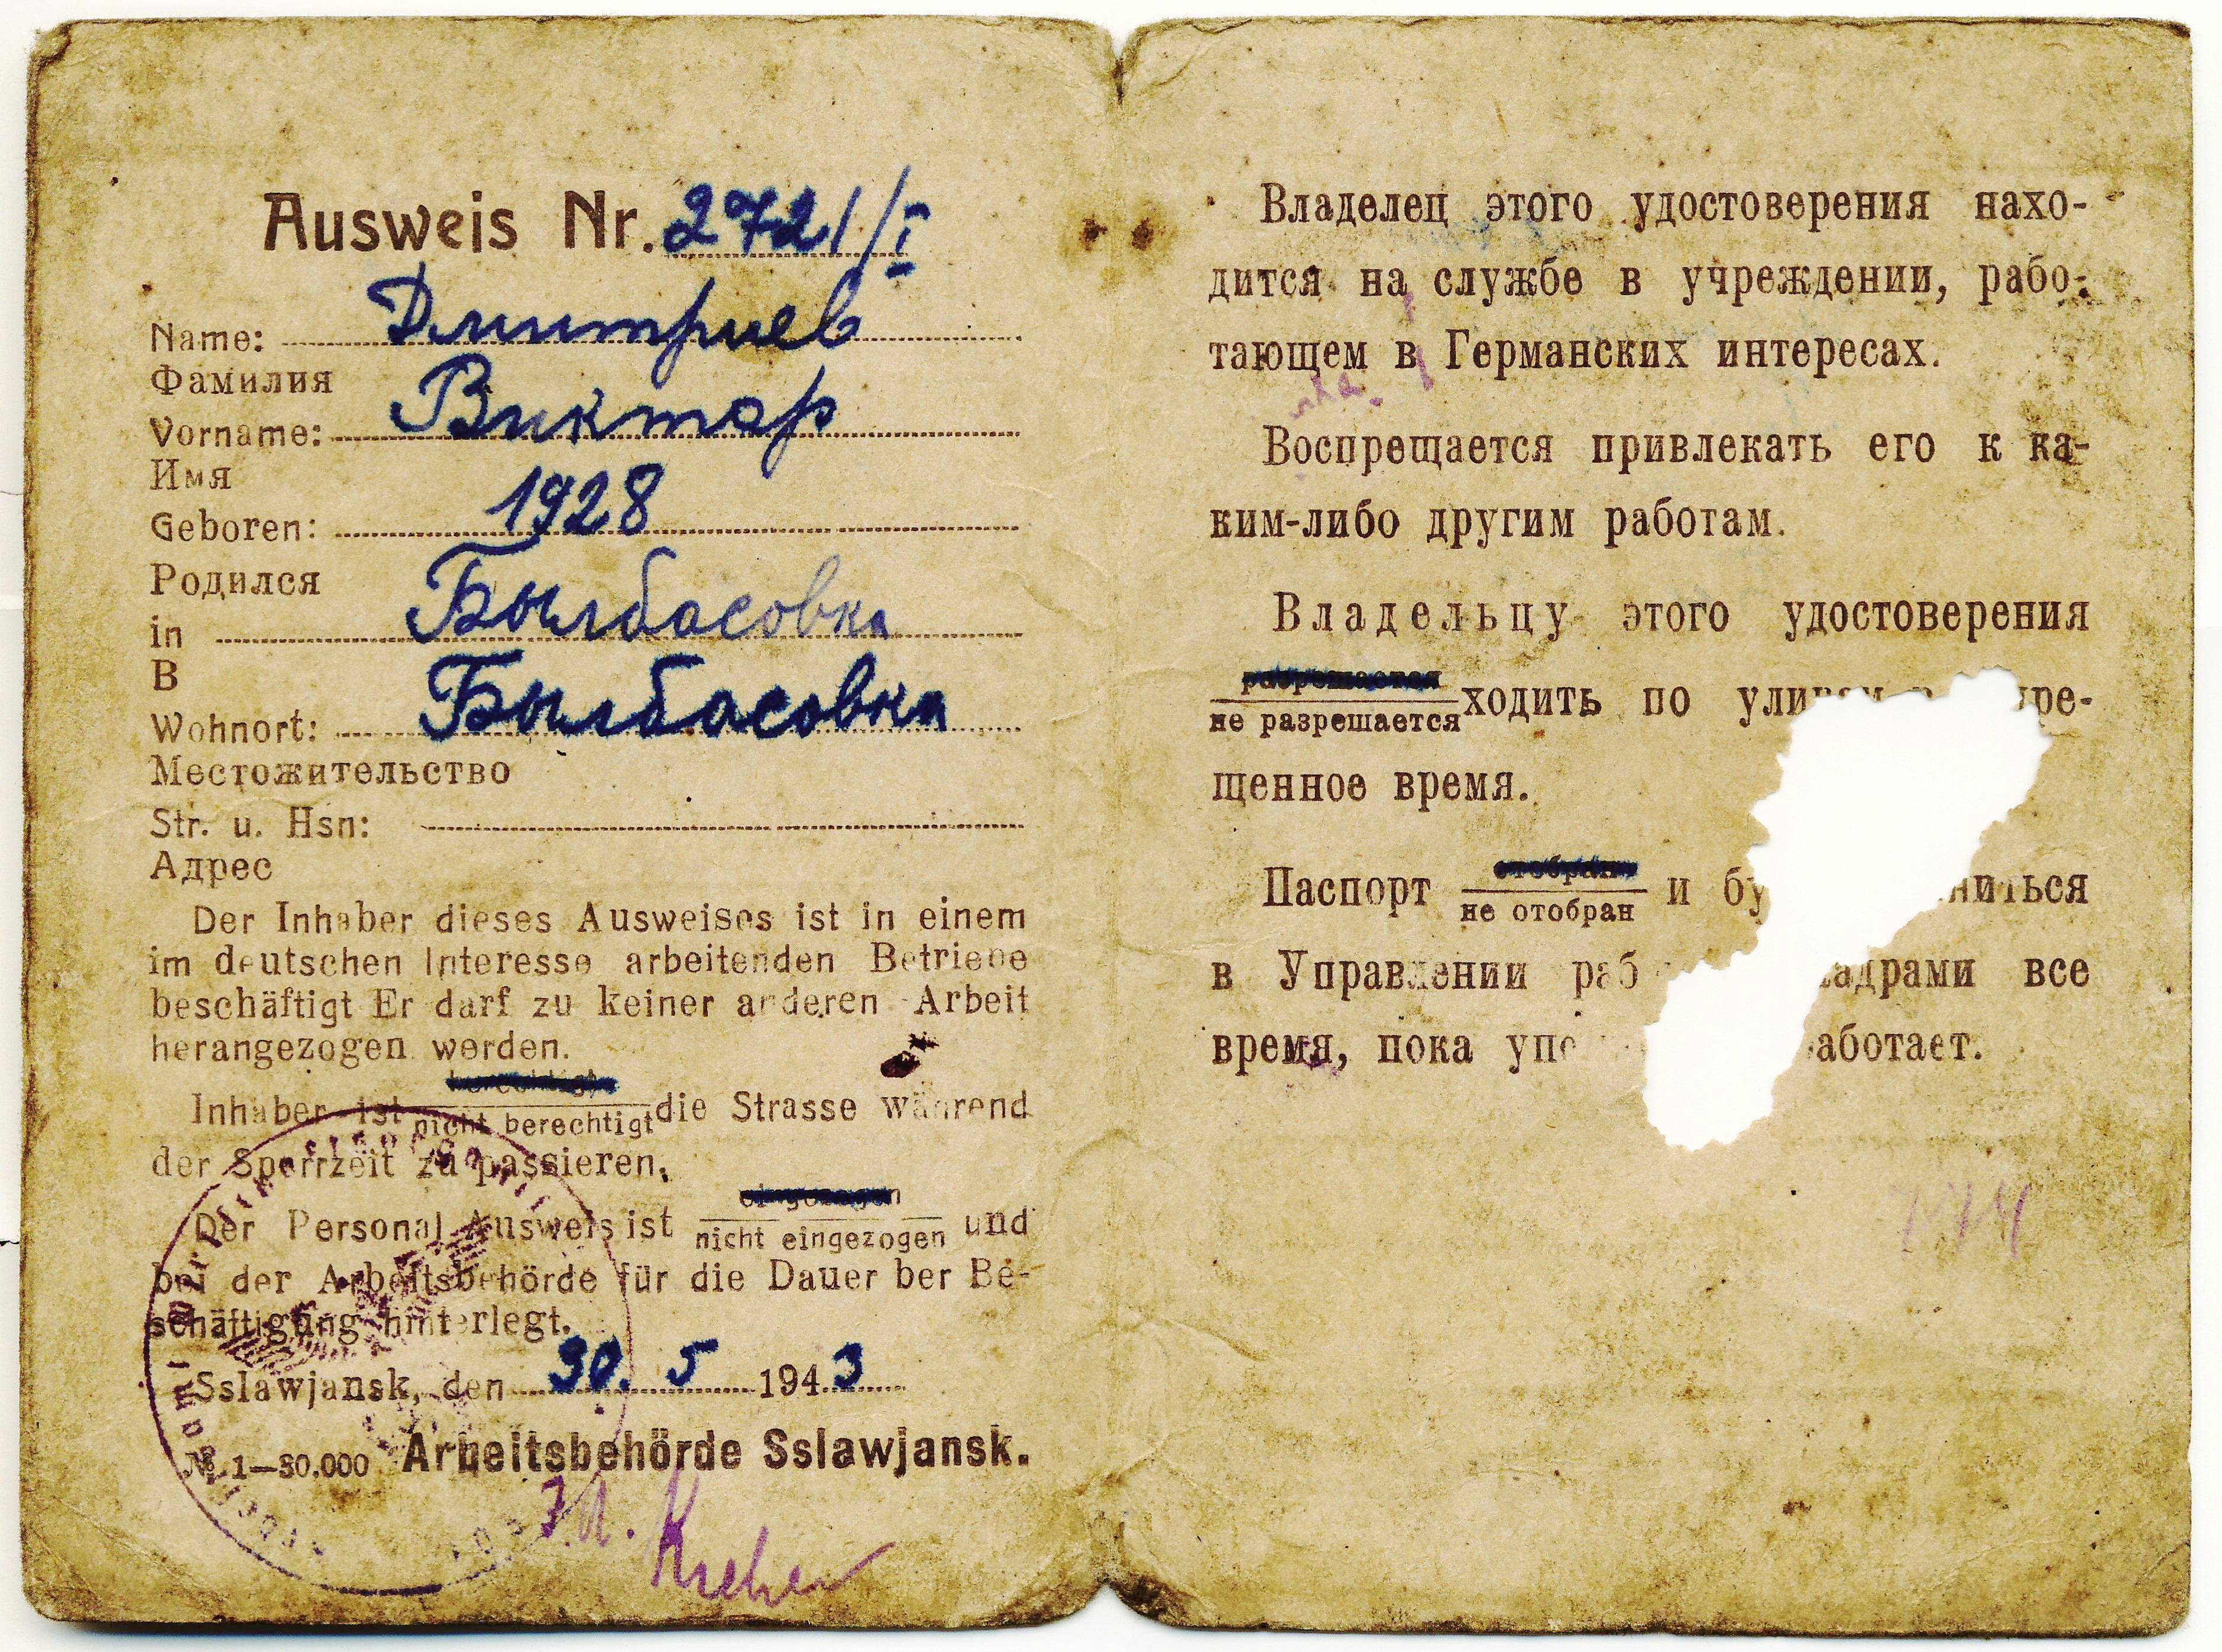 Ausweis Nr. 2721/I
Name: Дмитриев
Фамилия
Vorname: Виктор
Имя
Geboren: 1928
Родился
in Былбасовка
В
Wohnort: Былбасовка
Местожительство
Str. u. Hsn:
Адрес
Der Inhaber dieses Ausweises ist in einem
im deutschen Interesse arbeitenden Betriebe
beschäftigt Er darf zu keiner anderen Arbeit
herangezogen werden.
berechtigt
Inhaber ist nicht berechtigt die Strasse während
der Sperrzeit zu passieren.
eingezogen
Der Personal Ausweis ist nicht eingezogen und
bei der Arbeitsbehörde für die Dauer ber Be-
schäftigung hinterlegt.
Sslawjansk, den 30. 5 1943
№ 1—30.000 Arbeitsbehörde Sslawjansk.
J.A.
Владелец этого удостоверения нахо-
дится на службе в учреждении, рабо-
тающем в Германских интересах.
Воспрещается привлекать его к ка-
ким-либо другим работам.
Владельцу этого удостоверения
разрешается
не разрешается ходить по
щенное время.
отобран
Паспорт не отобран и
в Управлении все
время, пока